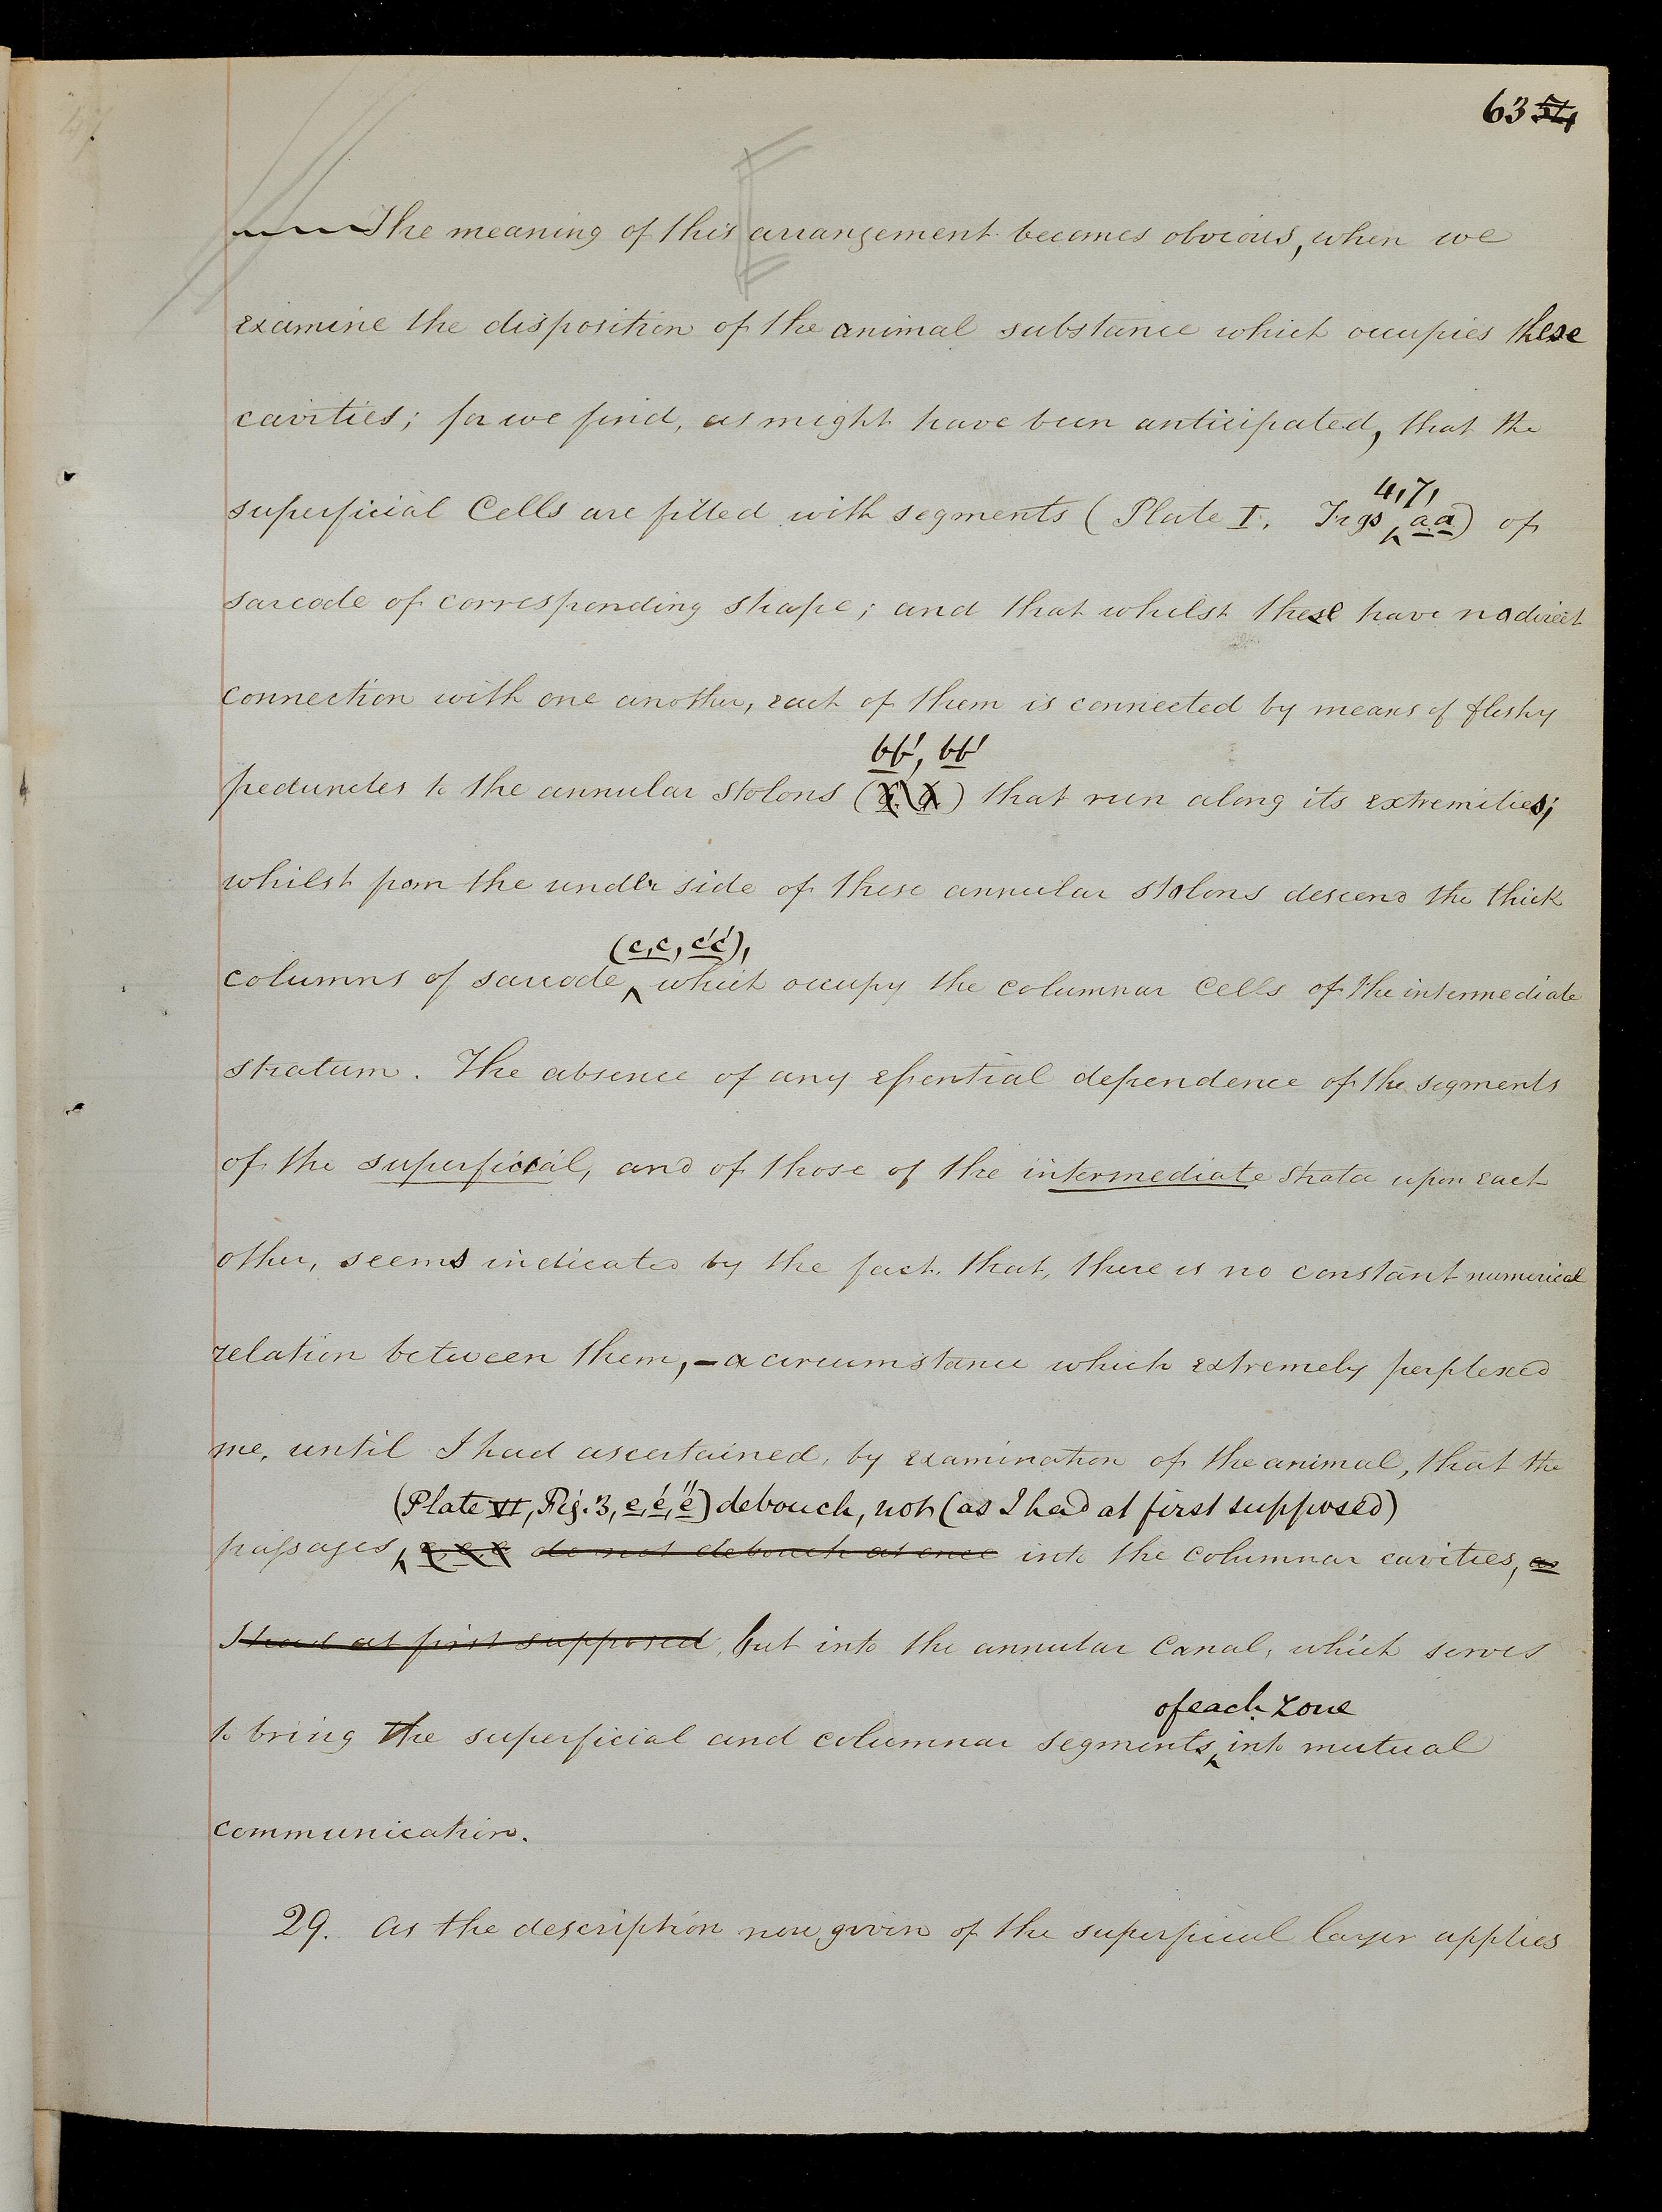 63 54
The meaning of this arrangement becomes obvious, when we
examine the disposition of the animal substance which occupies these
cavities; for we find, as might have been anticipated, that the
4,7,
superficial Cells are filled with segments (Plate I. Figs a a) of
sarcode of corresponding shape; and that whilst these have no direct
connection with one another, each of them is connected by means of fleshy
bb', bb'
peduncles to the annular stolons ( ) that run along its extremities;
whilst from the under side of these annular stolons descend the thick
(c,c, c'c'),
columns of sarcode which occupy the columnar Cells of the intermediate
stratum. The absence of any essential dependence of the segments
of the superficial, and of those of the intermediate strata upon each
other, seems indicated by the fact, that, there is no constant numerical
relation between them, – a circumstance which extremely perplexed
me, until I had ascertained, by examination of the animal, that the
(Plate VI, Fig. 3, e, e', e'') debouch, not (as I had at first supposed)
passages do not debouch at once into the columnar cavities, as
I had at first supposed, but into the annular Canal, which serves
of each zone
to bring the superficial and columnar segments into mutual
communication.
29. As the description now given of the superficial layer applies